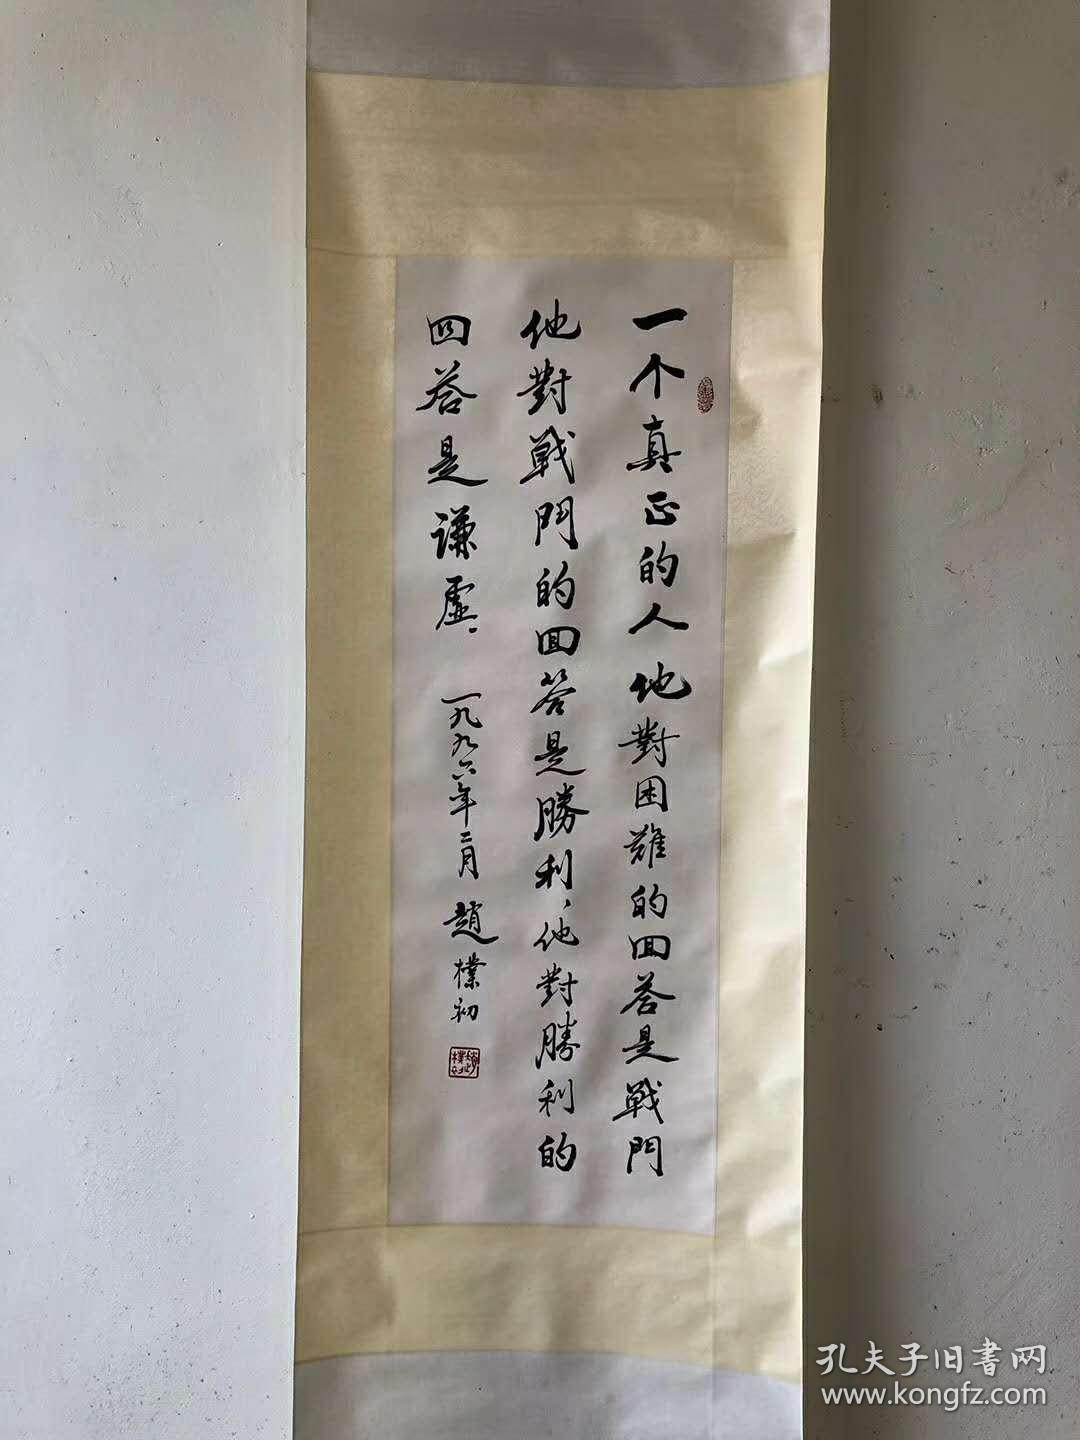 一个真正的人他對困難的回答是戰鬥
他對戰鬥的回答是勝利、他對勝利的
回答是謙虛。
一九九六年二月 趙樸初
趙樸初
孔夫子旧書网
www.kongfz.com